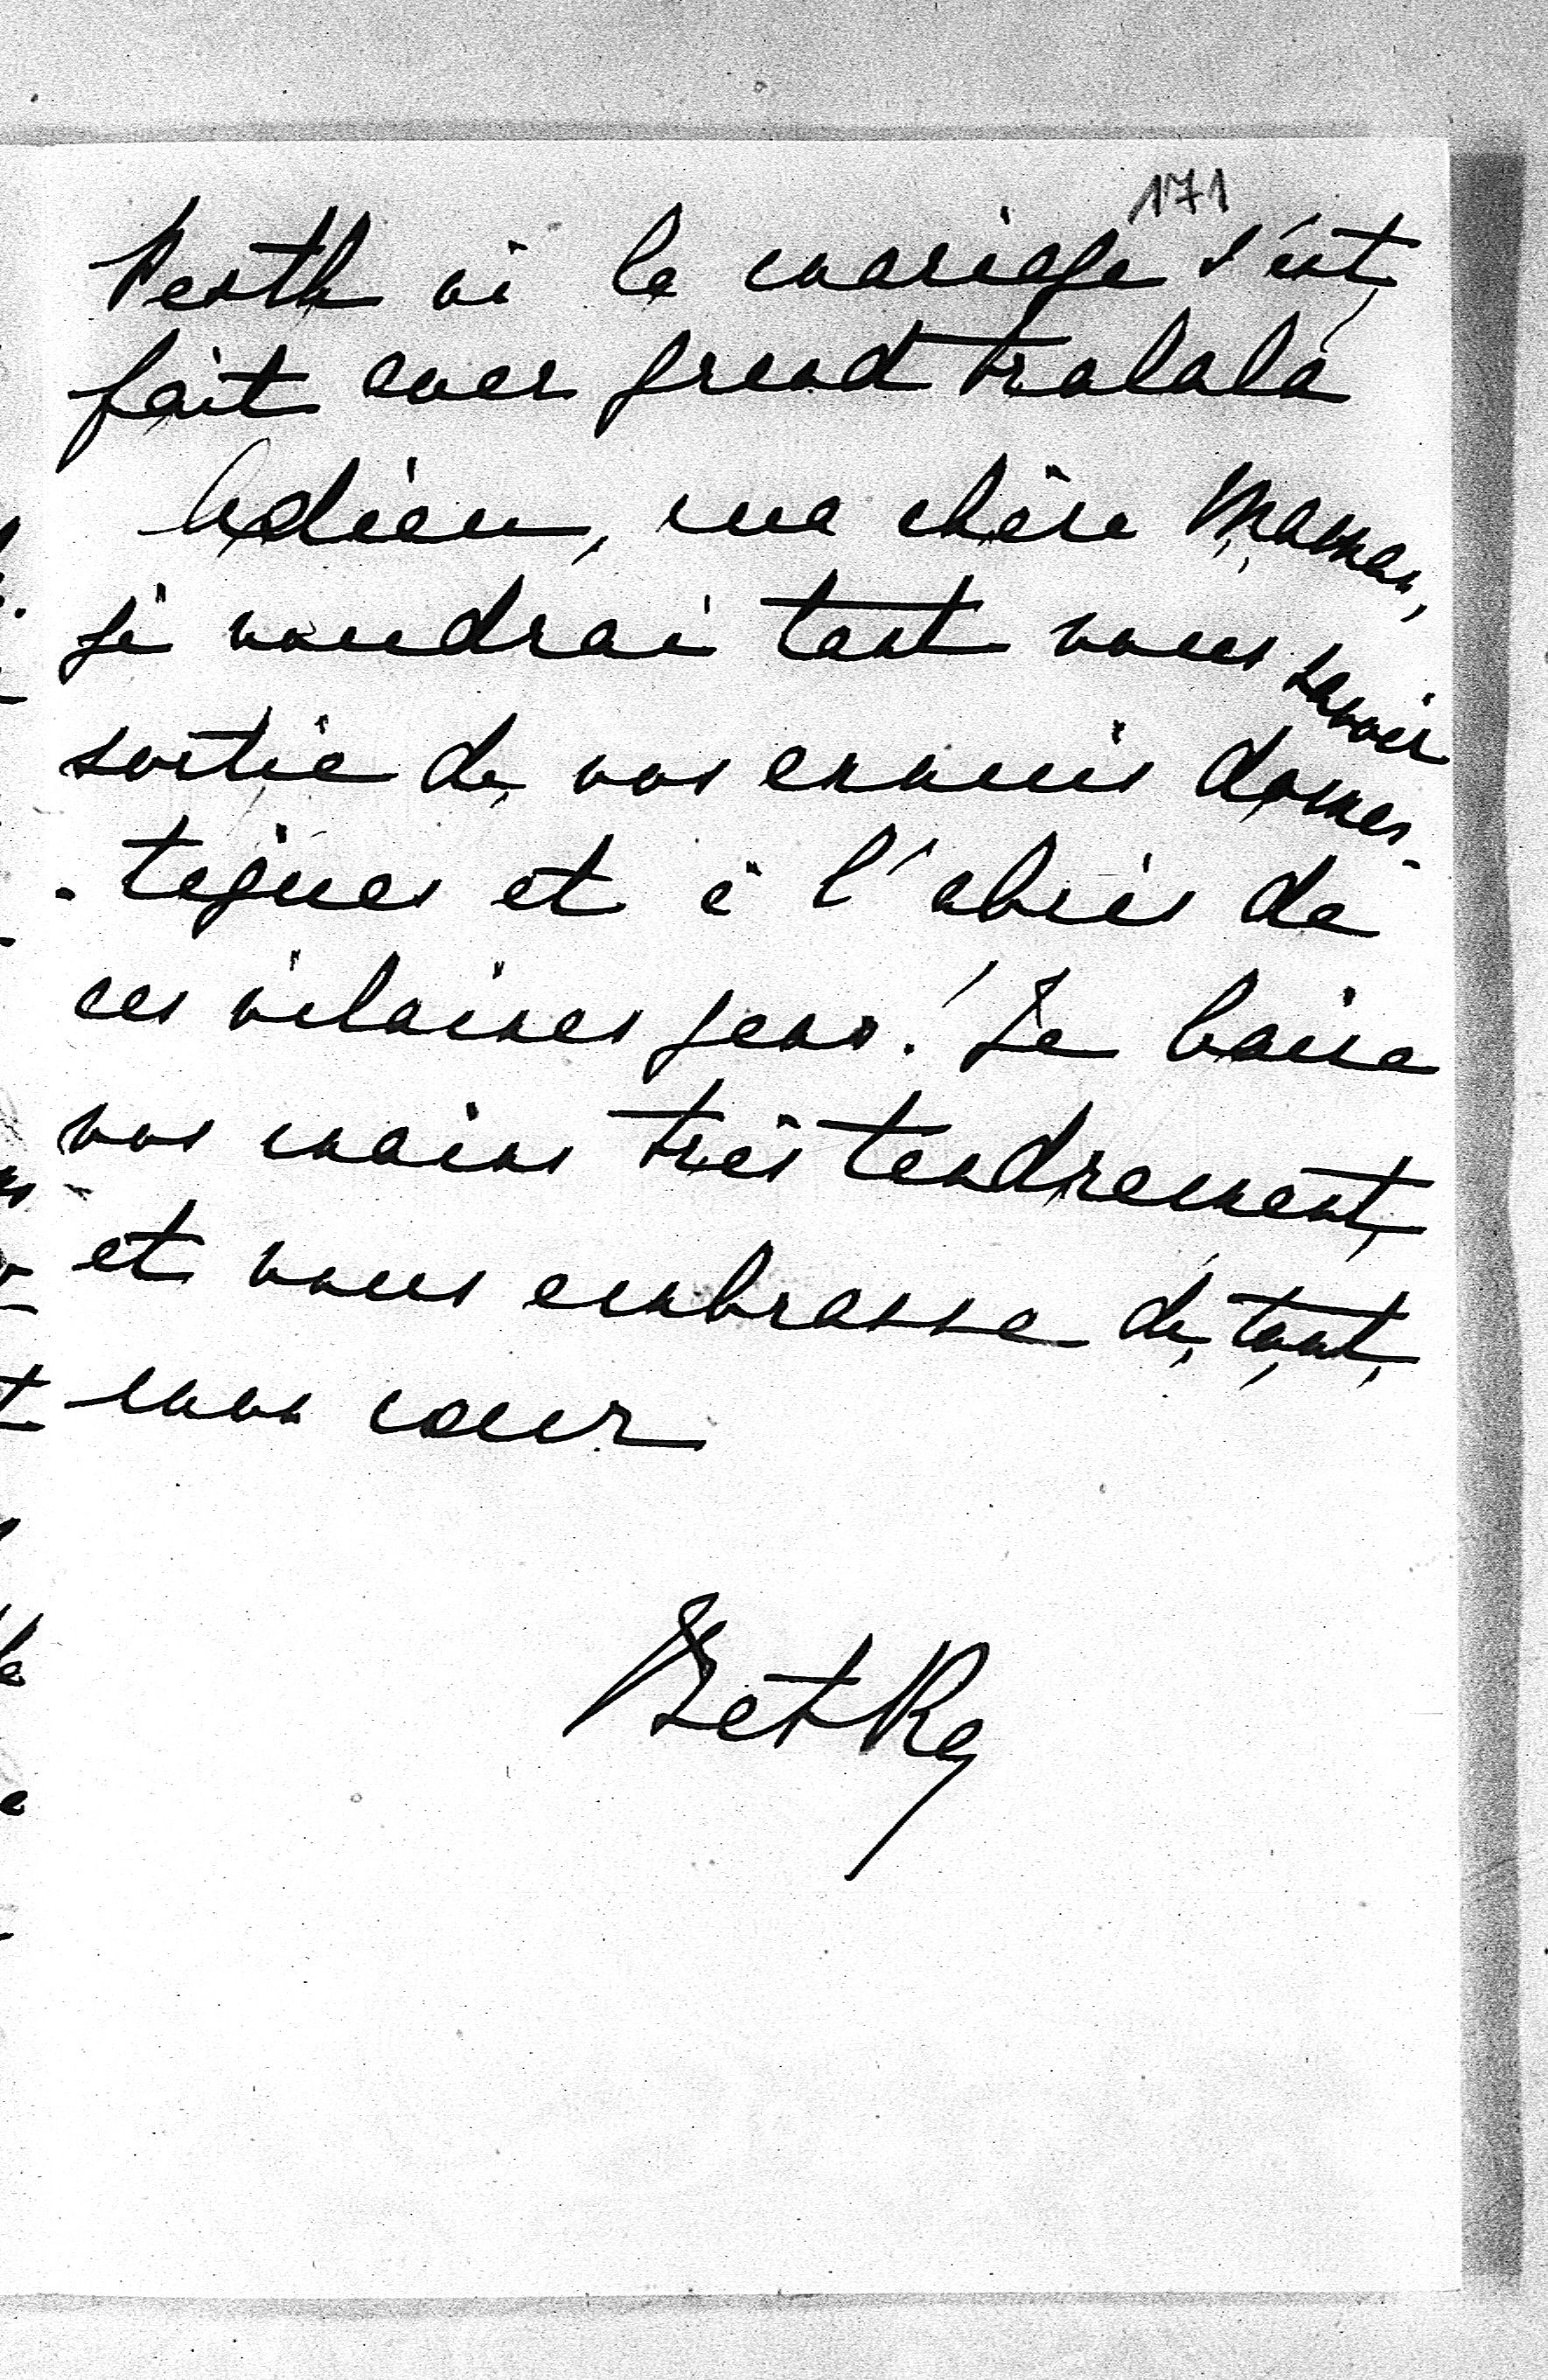 171
Pesth où le mariage s'est
fait avec grand tralala
Adieu, ma chère Maman,
je voudrai tant vous savoir
sortie de vos ennuis domes-
-tiques et à l'abris de
ces vilaines gens! Je baise
vos mains très tendrement
et vous embrasse de tout
mon cœur
BetKa